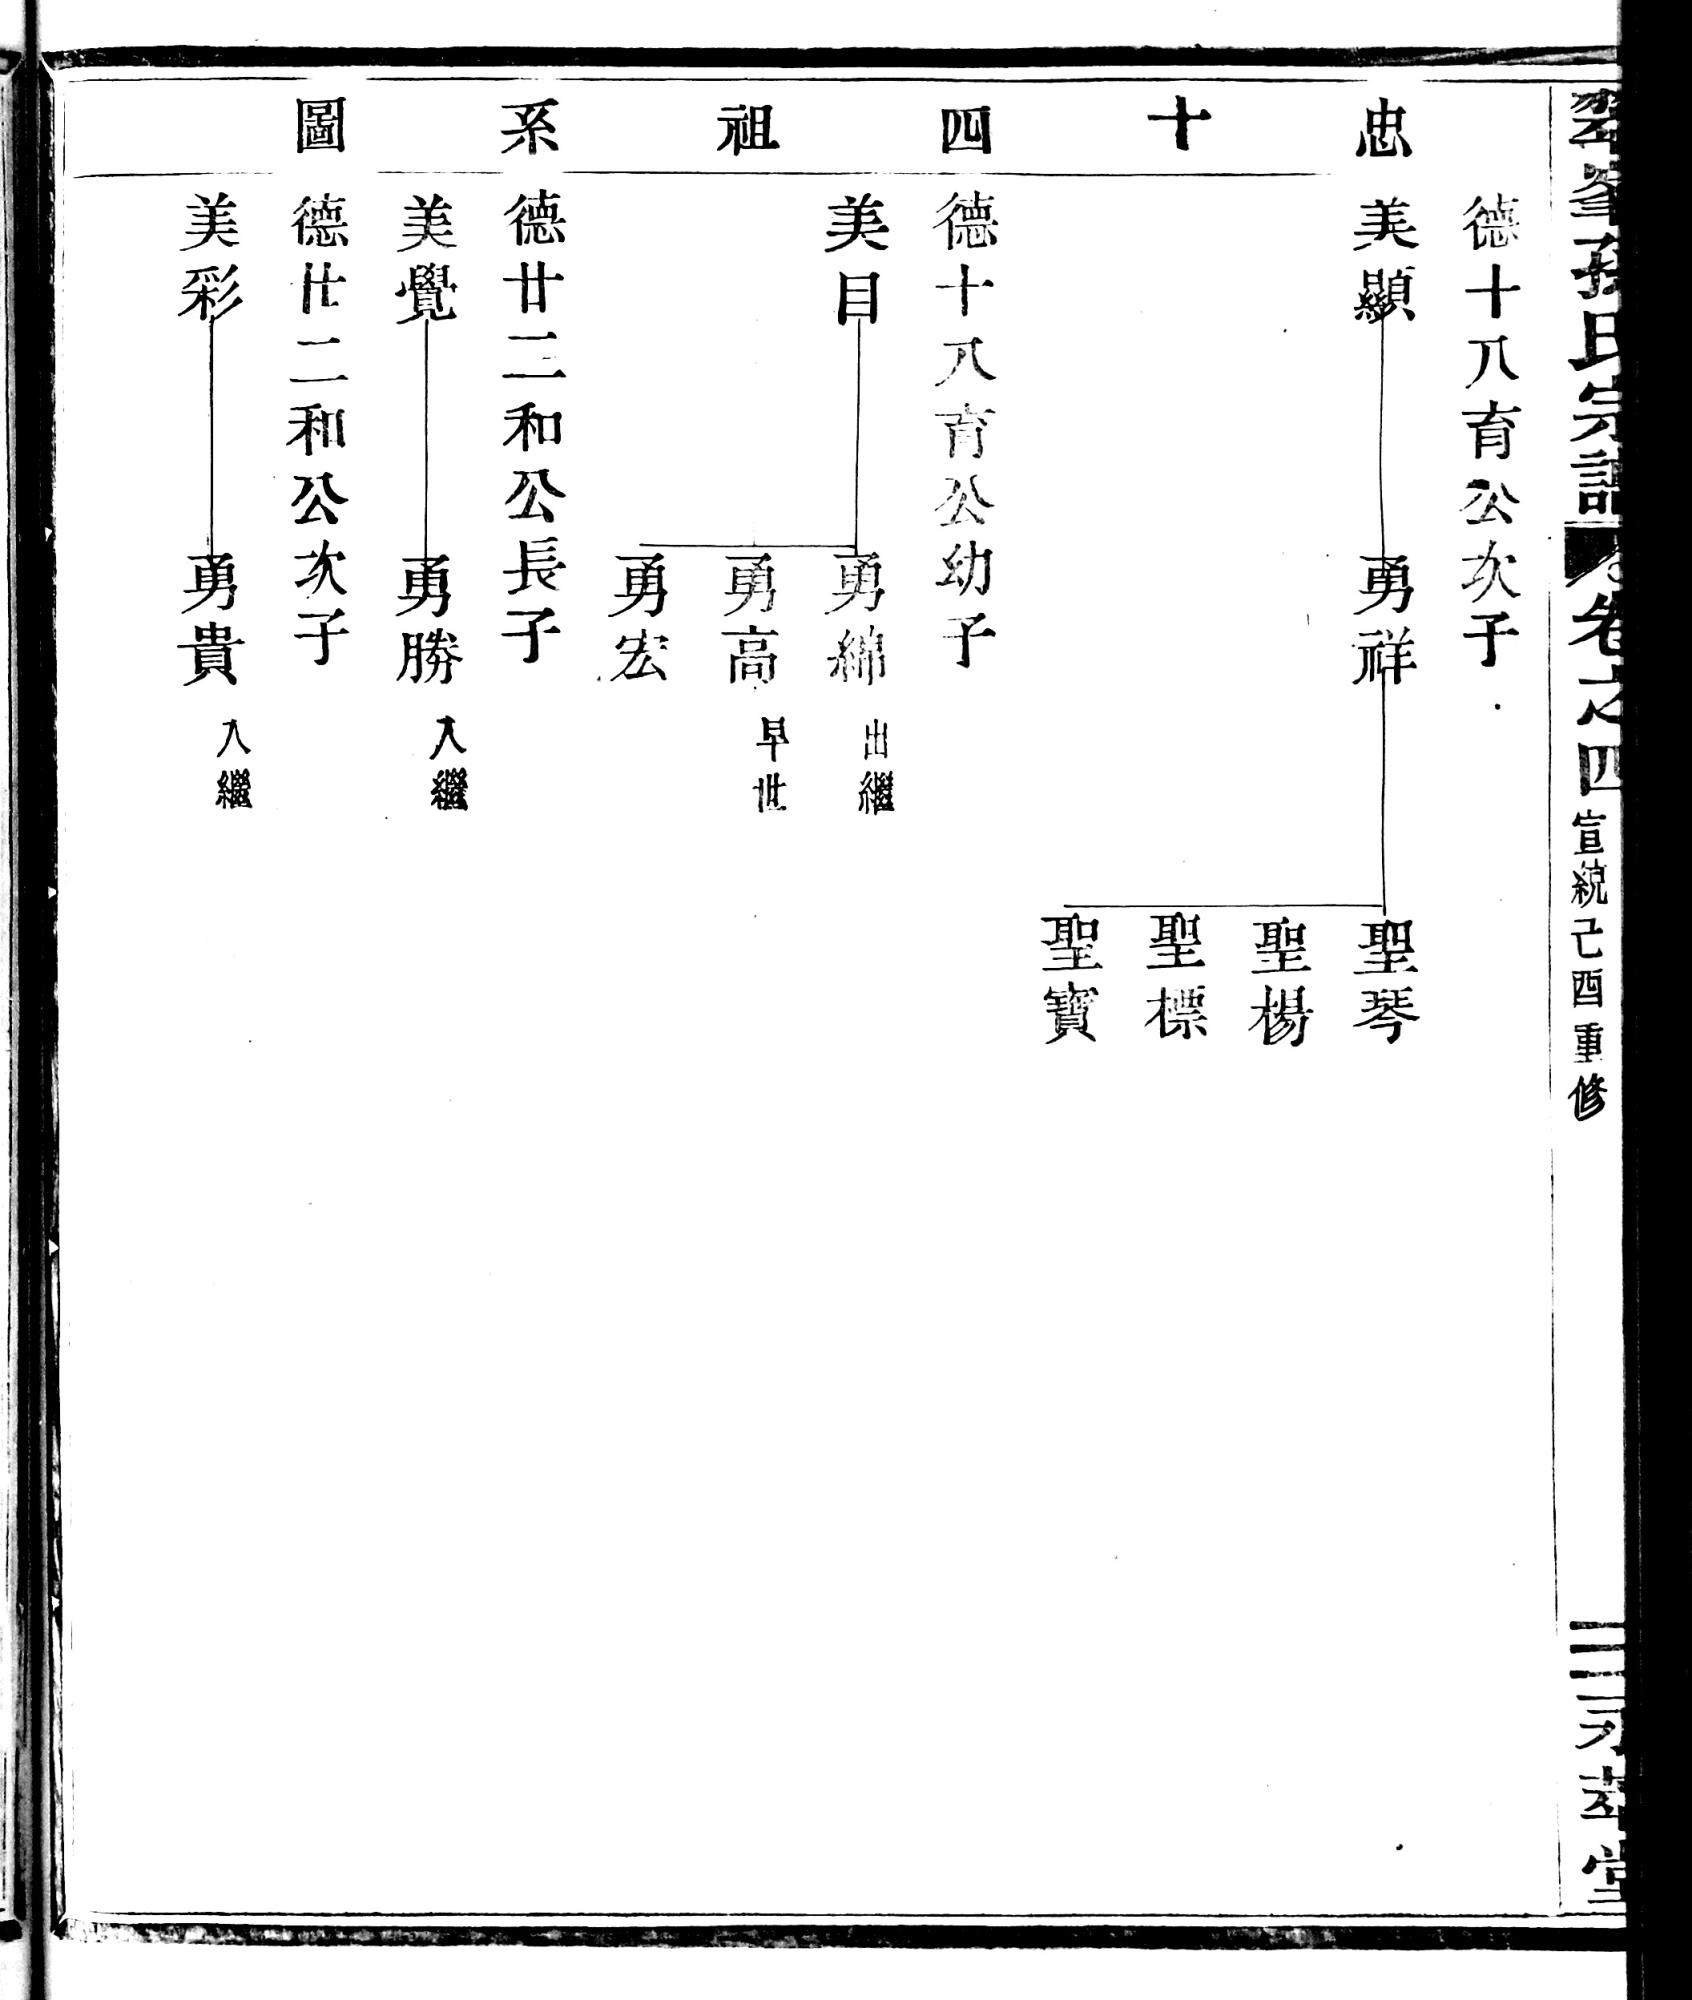 忠十四祖系圖
德十八育公次子
美顯
勇祥
聖琴
聖楊
聖標
聖寶
德十八育公幼子
美目
勇綿 出繼
勇高 早世
勇宏
德廿二和公長子
美覺
勇勝 入繼
德廿二和公次子
美彩
勇貴 入繼
孫氏宗譜
卷之四
宣統己酉重修
堂